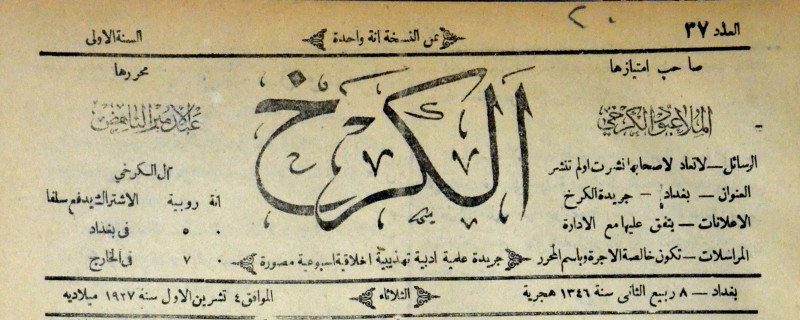 العدد ٣٧
ثمن النسخة انة واحدة
السنة الاولى
صاحب امتيازها
الملا عبود الكرخي
محررها
عبد الامير الناهض
الكرخ
الرسائل — لا تعاد لاصحابها نشرت او لم تنشر
العنوان — بغداد — جريدة الكرخ
الاعلانات — يتفق عليها مع الادارة
المراسلات — تكون خالصة الاجرة وباسم المحرر
الكرخي
انة روبية الاشتراك يدفع سلفا
٠ ٥ في بغداد
٠ ٧ في الخارج
جريدة علمية ادبية تهذيبية اخلاقية اسبوعية مصورة
بغداد — ٨ ربيع الثانى سنة ١٣٤٦ هجرية
الثلاثاء
الموافق ٤ تشرين الاول سنة ١٩٢٧ ميلاديه